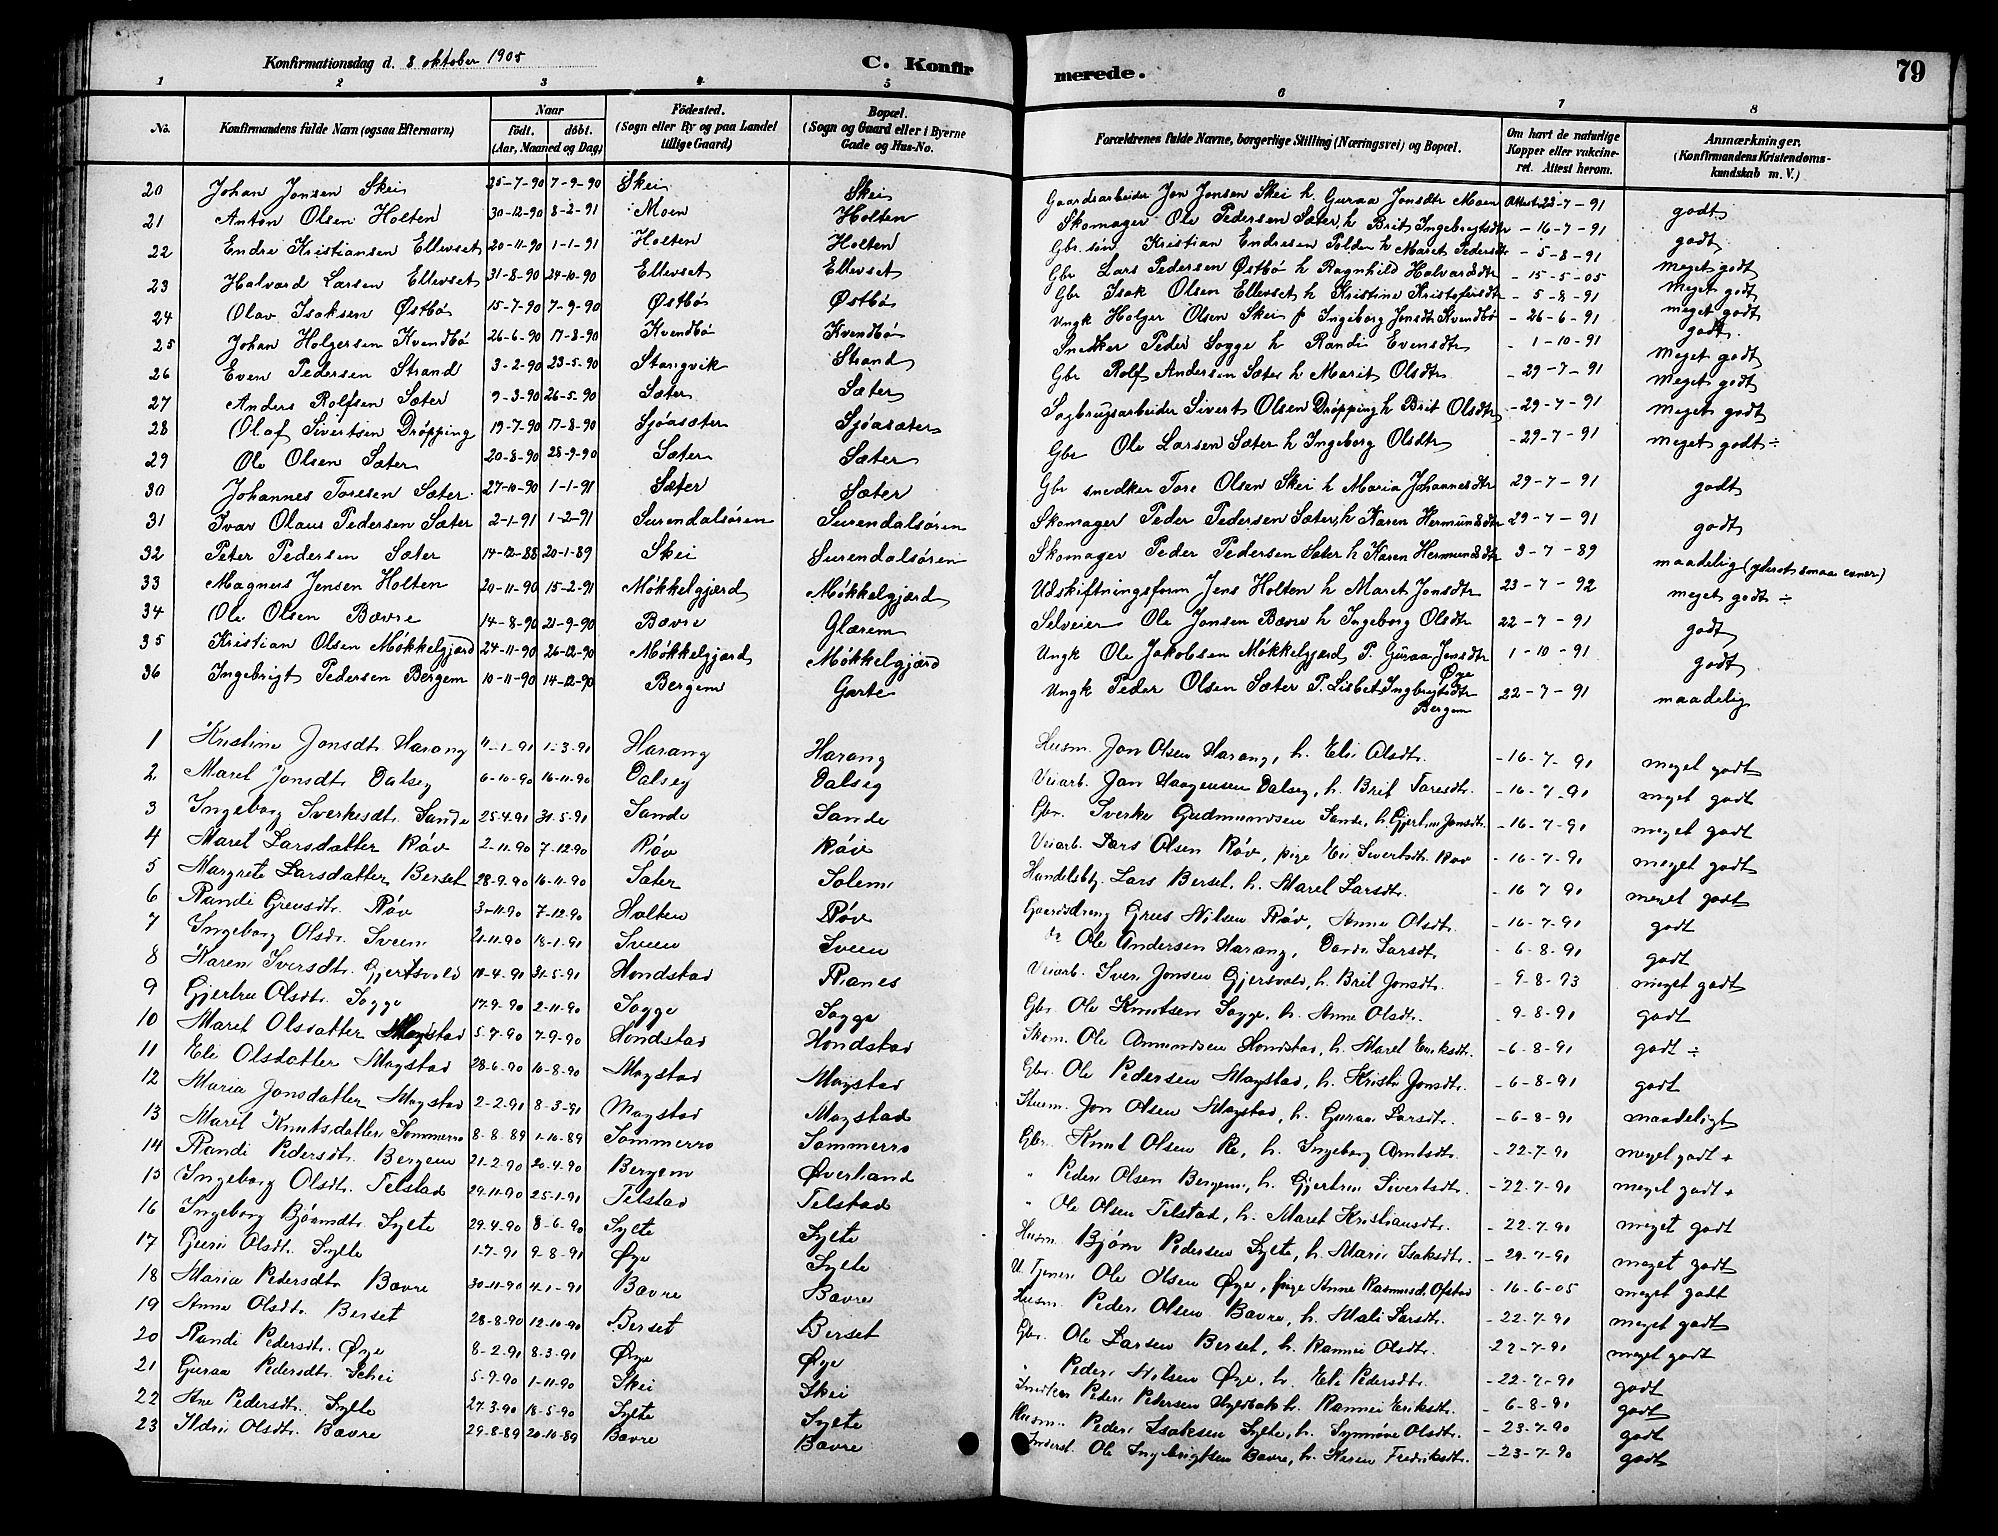 Konfirmationsdag d. 8 oktober 1905 C. Konfirmerede. 79
1 2 3 4 5 6 7 8
No. Konfirmandens fulde Navn (ogsaa Efternavn) Naar födt. döbt. (Aar, Maaned og Dag) Födested. (Sogn eller By og paa Landet tillige Gaard) Bopæl. (Sogn og Gaard eller i Byerne Gade og Hus-No. Forældrenes fulde Navne, borgerlige Stilling (Næringsvei) og Bopæl. Om havt de naturlige Kopper eller vakcineret. Attest herom. Anmærkninger. (Konfirmandens Kristendomskundskab m. V.)
20 Johan Jonsen Skei 25-7-90 7-9-90 Skei Skei Gaardsarbeider Jon Jonsen Skei h. Guraa Jonsdtr Moen Attest 23-7-91 godt
21 Anton Olsen Holten 30-12-90 8-2-91 Moen Holten Skomager Ole Pedersen Sæter, h Brit Ingebrigtsdtr - 16-7-91 godt
22 Endre Kristiansen Ellevset 20-11-90 1-1-91 Holten Holten Gbr. søn Kristian Endresen Polden h Maret Pedersdtr - 5-8-91 meget godt
23 Halvard Larsen Ellevset 31-8-90 24-10-90 Ellevset Ellevset Gbr Lars Pedersen Østbø h Ragnhild Halvardsdtr - 15-5-05 meget godt
24 Olav Isaksen Østbø 15-7-90 7-9-90 Østbø Østbø Gbr Isak Olsen Ellevset h Kristine Kristofersdtr - 5-8-91 meget godt
25 Johan Holgersen Kvendbø 26-6-90 17-8-90 Kvendbø Kvendbø Ungk Holger Olsen Skei p Ingeborg Jonsdtr Kvendbø - 26-6-91 godt
26 Even Pedersen Strand 3-2-90 23-5-90 Stangvik Strand Snedker Peder Sogge h Randi Evensdtr - 1-10-91 meget godt
27 Anders Rolfsen Sæter 9-3-90 26-5-90 Sæter Sæter Gbr Rolf Andersen Sæter h Marit Olsdtr - 29-7-91 meget godt
28 Olaf Sivertsen Drøpping 19-7-90 17-8-90 Sjøasæter Sjøasæter Sagbrugsarbeider Sivert Olsen Drøpping h Brit Olsdtr - 29-7-91 meget godt
29 Ole Olsen Sæter 20-8-90 28-9-90 Sæter Sæter Gbr Ole Larsen Sæter h Ingeborg Olsdtr - 29-7-91 meget godt ÷
30 Johannes Toresen Sæter 27-10-90 1-1-91 Sæter Sæter Gbr snedker Tore Olsen Skei h Maria Johannesdtr 29-7-91 godt
31 Ivar Olaus Pedersen Sæter 2-1-91 1-2-91 Surendalsøren Surendalsøren Skomager Peder Pedersen Sæter, h Karen Hermundsdtr 29-7-91 godt
32 Peter Pedersen Sæter 14-12-88 20-1-89 Skei Surendalsøren Skomager Peder Pedersen Sæter h Karen Hermundsdtr 3-7-89 maadelig (yderst smaa evner)
33 Magnus Jensen Holten 20-11-90 15-2-91 Møkkelgjærd Møkkelgjærd Udskiftningsform Jens Holten h Maret Jonsdtr 23-7-92 meget godt ÷
34 Ole Olsen Bævre 14-8-90 21-9-90 Bævre Glærem Selveier Ole Jonsen Bævre h Ingeborg Olsdtr 22-7-91 godt
35 Kristian Olsen Møkkelgjærd 24-11-90 26-12-90 Møkkelgjærd Møkkelgjærd Ungk Ole Jakobsen Møkkelgjærd P. Guraa Jonsdtr Øye 1-10-91 godt
36 Ingebrigt Pedersen Bergem 10-11-90 14-12-90 Bergem Garte Ungk Peder Olsen Sæter P. Lisbet Ingbrigtsdtr Bergem 22-7-91 maadelig
1 Kristine Jonsdtr. Harang 11-1-91 1-3-91 Harang Harang Husm. Jon Olsen Harang, h. Eli Olsdtr. - 16-7-91 meget godt
2 Maret Jonsdtr Dalseg 6-10-90 16-11-90 Dalseg Dalseg Veiarb. Jon Haagensen Dalseg, h. Brit Toresdtr. - 16-7-91 meget godt
3 Ingeborg Sverkesdtr. Sande 25-4-91 31-5-91 Sande Sande Gbr. Sverke Gudmundsen Sande, h. Gjertru Jonsdtr. - 16-7-91 meget godt
4 Maret Larsdatter Røv 2-11-90 7-12-90 Røv Røv Veiarb. Lars Olsen Røv, pige Eli Sivertsdtr. Røv - 16-7-91 meget godt
5 Margrete Larsdatter Berset 28-9-90 16-11-90 Sæter Solem Handelsbtj. Lars Berset, h. Maret Larsdtr. - 16 7 91 meget godt
6 Randi Greusdtr. Røv 3-11-90 7-12-90 Holten Røv Gaardsdreng Greus Nilsen Røv, Anne Olsdtr. - 16-7-91 godt
7 Ingeborg Olsdtr. Sveen 21-11-90 18-1-91 Sveen Sveen Ole Andersen Harang, Larsdtr - 6-8-91 godt
8 Karen Iversdtr. Gjertsvold 18-4-91 31-5-91 Hondstad Ranes Veiarb. Iver Jonsen Gjersvold, h. Brit Jonsdtr. - 9-8-93 meget godt
9 Gjertru Olsdtr. Sogge 17-9-90 2-11-90 Sogge Sogge Gbr. Ole Knutsen Sogge, h. Anne Olsdtr. - 9-8-91 godt
10 Maret Olsdatter Mogstad 5-7-90 7-9-90 Hondstad Hondstad Skom. Ole Amundsen Hondstad, h. Maret Eriksdtr. - 6-8-91 godt ÷
11 Eli Olsdatter Mogstad 28-6-90 10-8-90 Mogstad Mogstad Gbr. Ole Pedersen Mogstad, h. Kristi Jonsdtr. - 6-8-91 godt
12 Maria Jonsdatter Mogstad 2-2-91 8-3-91 Mogstad Mogstad Husm. Jon Olsen Mogstad, h. Guraa Larsdtr. - 6-8-91 maadeligt
13 Maret Knutsdatter Sommerro 8-8-89 1-10-89 Sommerro Sommerro Gbr. Knut Olsen Re, h. Ingeborg Arntsdtr. - 22-7-91 meget godt +
14 Randi Pedersdtr. Bergem 21-2-90 20-4-90 Bergem Øverland " Peder Olsen Bergem, h. Gjertru Sivertsdtr. - 22-7-91 meget godt +
15 Ingeborg Olsdtr. Telstad 29-11-90 25-1-91 Telstad Telstad " Ole Olsen Telstad, h. Maret Kristiansdtr. - 22-7-91 meget godt
16 Ingeborg Bjørnsdtr. Sylte 29-4-90 8-6-90 Sylte Sylte Husm. Bjørn Pedersen Sylte, h. Marie Isaksdtr. - 29-7-91 meget godt
17 Guri Olsdtr. Sylte 1-7-91 9-8-91 Øye Sylte U. Tjener Ole Olsen Øye, pige Anne Rasmusd. Ofstad - 16-6-05 meget godt
18 Maria Pedersdtr. Bævre 30-11-90 4-1-91 Bævre Bævre Husm. Peder Olsen Bævre, h. Mali Larsdtr. - 22-7-91 meget godt
19 Anne Olsdtr. Berset 28-8-90 12-10-90 Berset Berset Gbr. Ole Larsen Berset, h. Rannei Olsdtr. - 22-7-91 meget godt
20 Randi Pedersdtr. Øye 8-2-91 8-3-91 Øye Øye " Peder Nilsen Øye, h. Eli Pedersdtr. - 22-7-91 godt
21 Guraa Pedersdtr. Schei 5-9-90 1-11-90 Skei Skei Snedker Peder Pedersen h. Rannei Eriksdtr. - 6-8-91 godt
22 Ane Pedersdtr. Sylte 27-3-90 18-5-90 Sylte Sylte Husm. Peder Isaksen Sylte, h. Synnøve Olsdtr. - 23-7-90 godt
23 Ildri Olsdtr. Bævre 29-8-89 20-10-89 Bævre Bævre Inderst. Ole Ingebrigtsen Bævre, h. Karen Fredriksdtr. - 23-7-90 godt